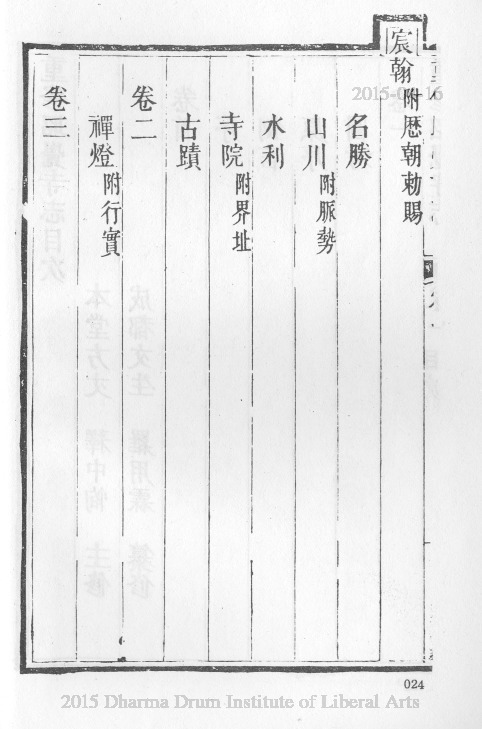 宸翰附歴朝勅賜
名勝
山川附脈勢
水利
寺院附界址
古蹟
卷二
禪燈附行實
卷三
024
2015 Dharma Drum Institute of Liberal Arts